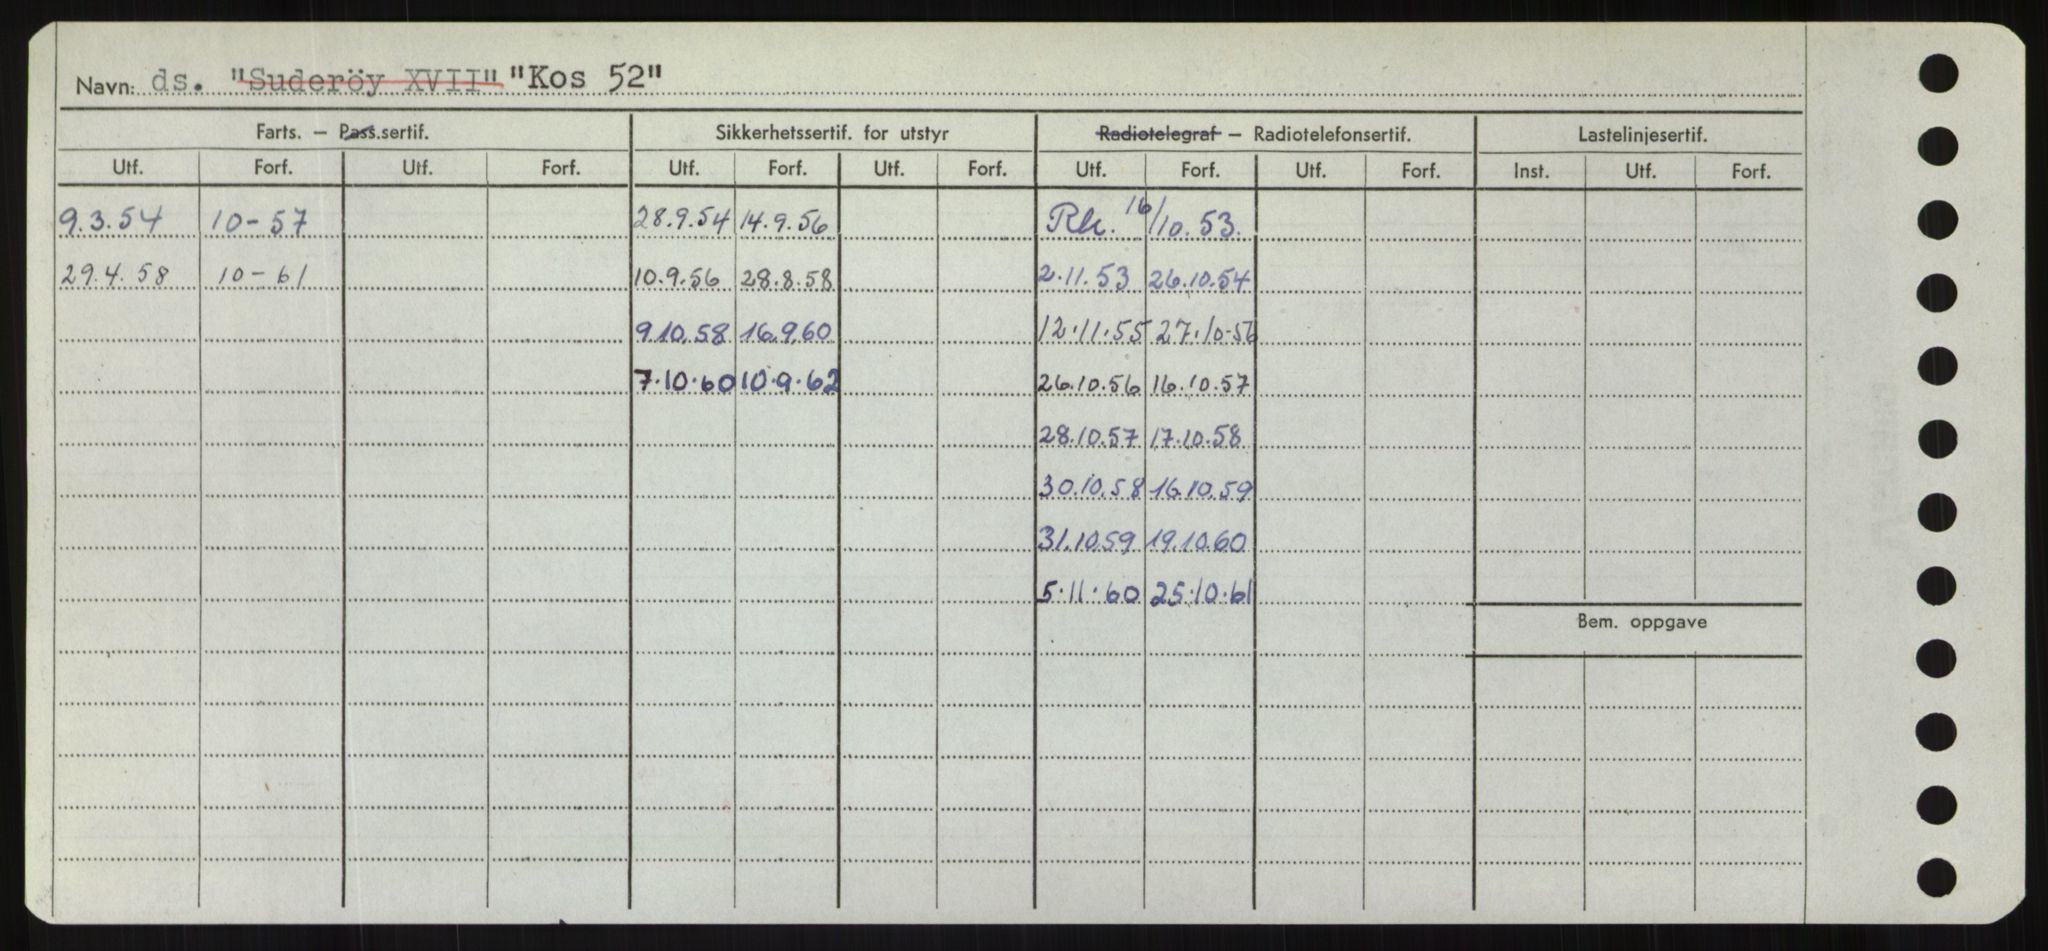 Navn: ds. "Suderöy XVII" "Kos 52"
Farts. – Pass.sertif. Sikkerhetssertif. for utstyr Radiotelegraf – Radiotelefonsertif. Lastelinjesertif.
Utf. Forf. Utf. Forf. Utf. Forf. Utf. Forf. Utf. Forf. Utf. Forf. Inst. Utf. Forf.
9.3.54 10-57 28.9.54 14.9.56 Rk. 16/10.53.
29.4.58 10-61 10.9.56 28.8.58 2.11.53 26.10.54
9.10.58 16.9.60 12.11.55 27.10-56
7.10.60 10.9.62 26.10.56 16.10.57
28.10.57 17.10.58
30.10.58 16.10.59
31.10.59 19.10.60
5.11.60 25.10.61
Bem. oppgave